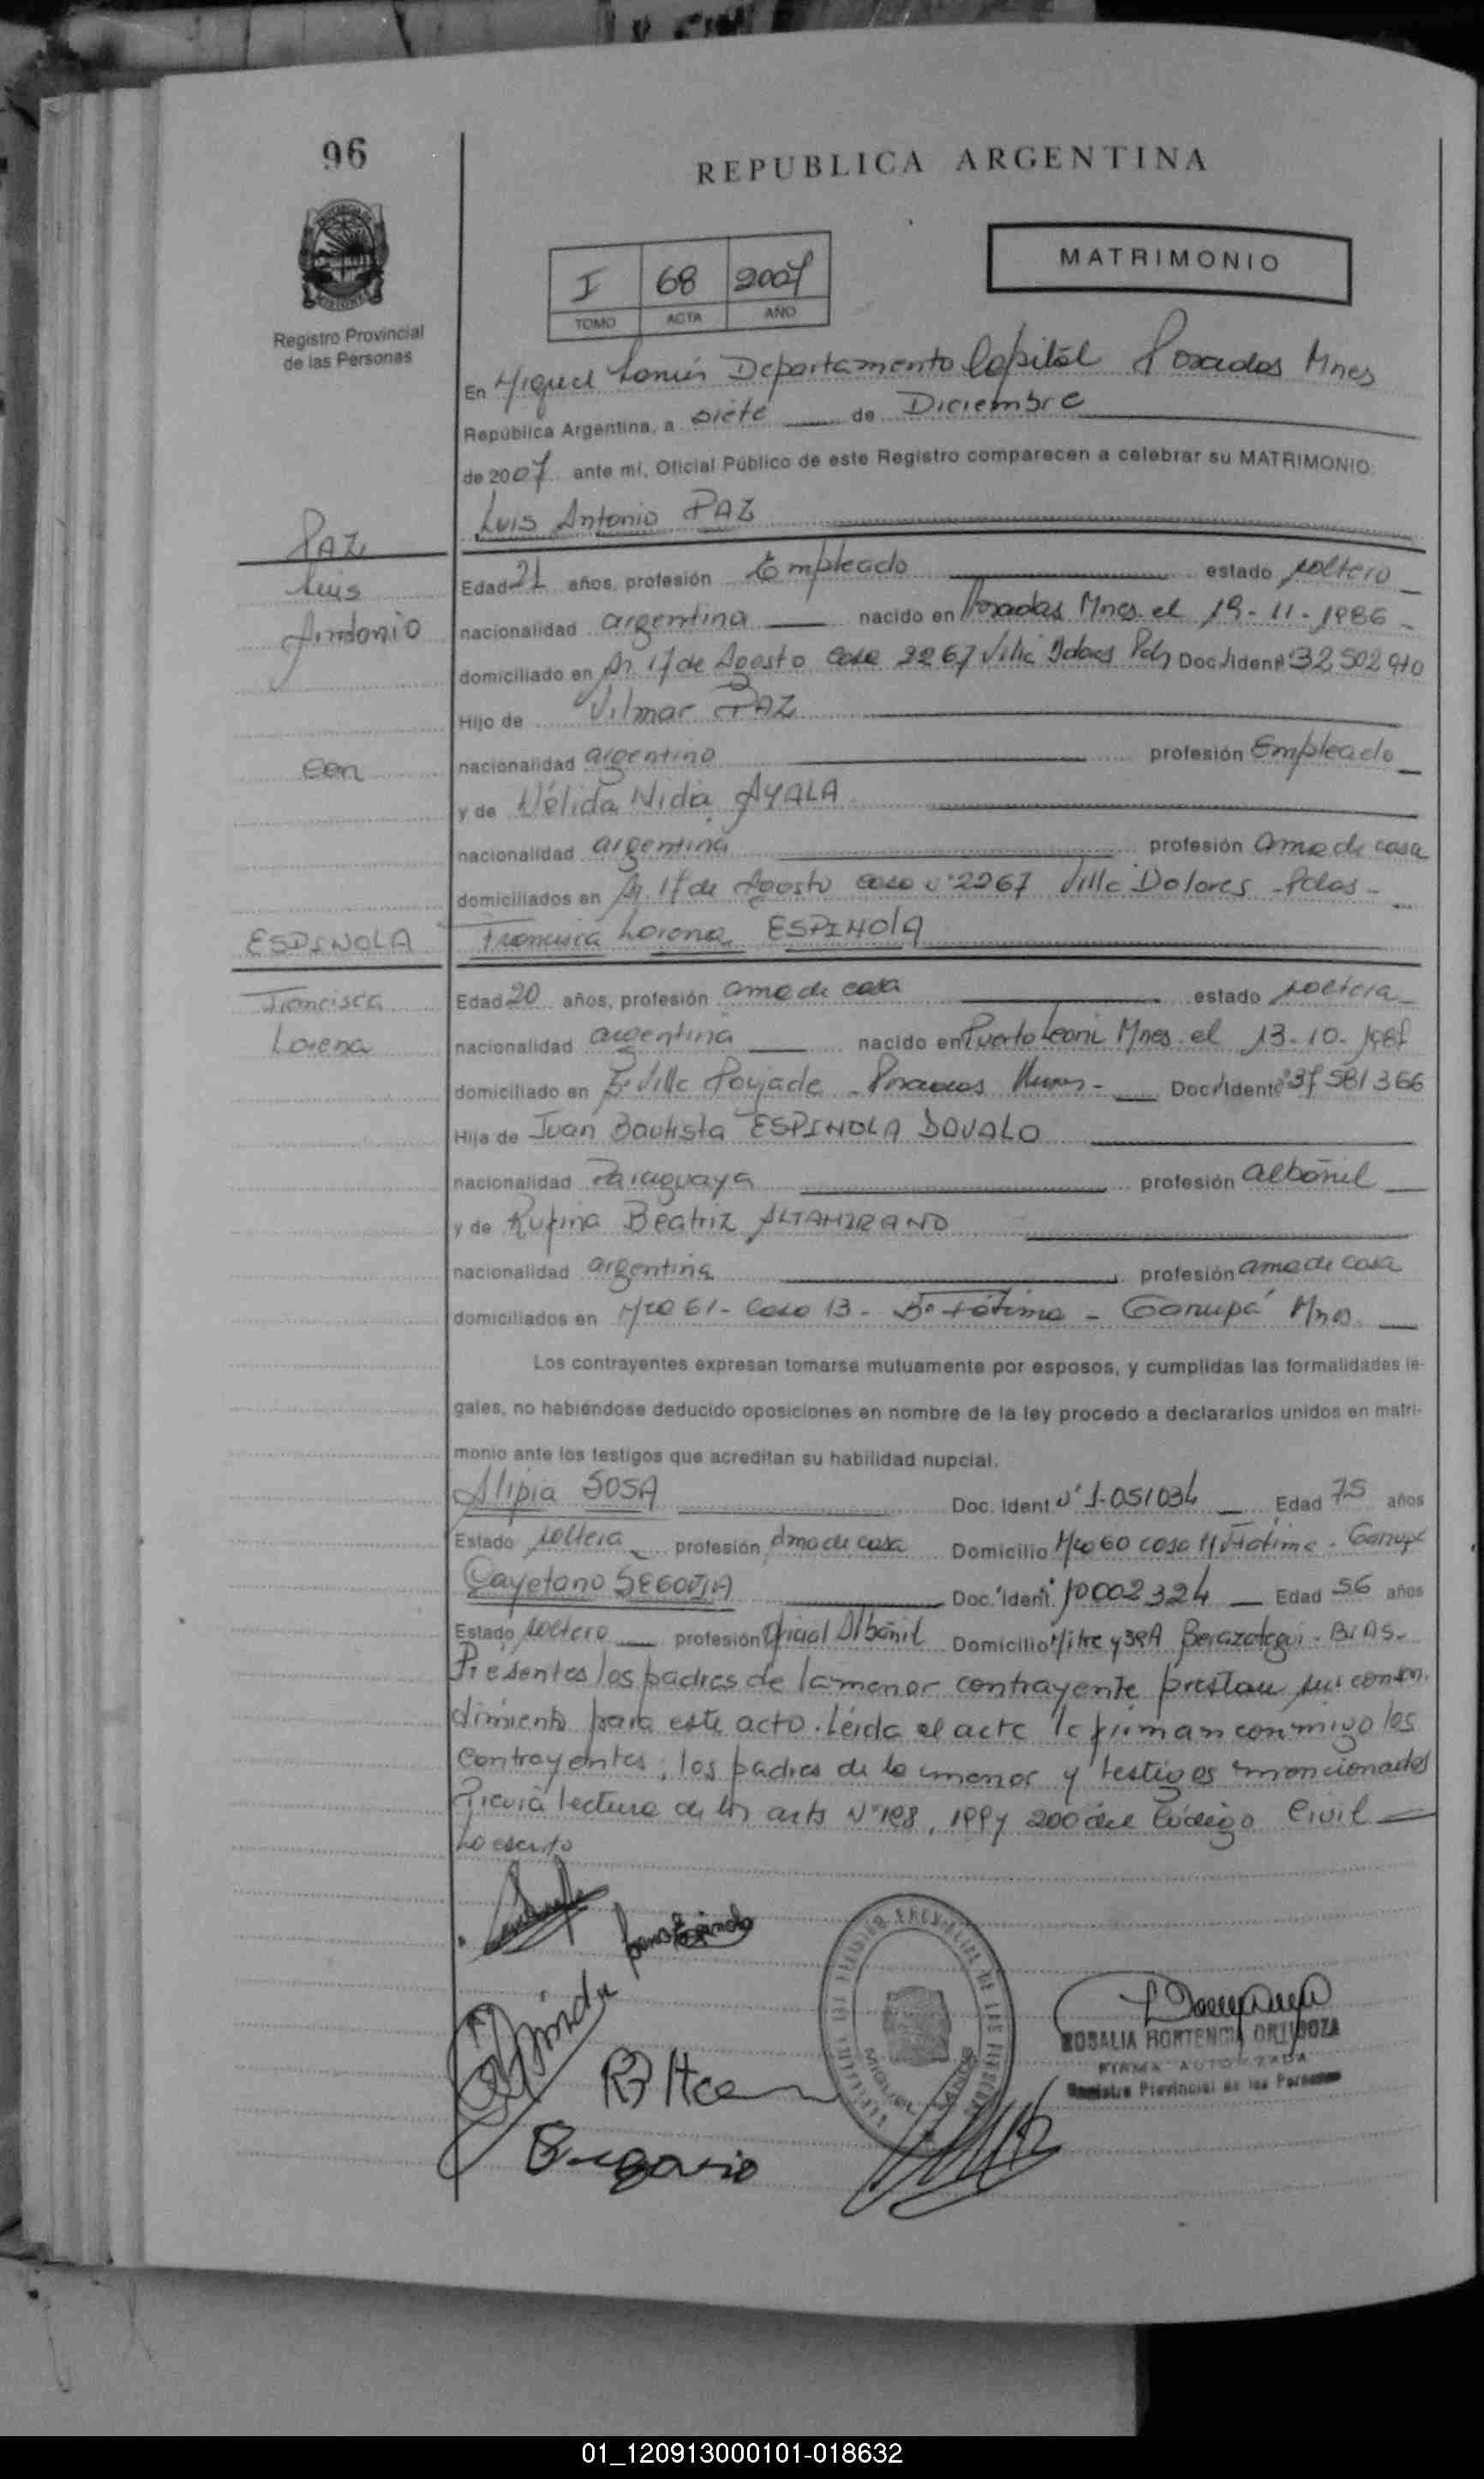 96
REPUBLICA ARGENTINA
MATRIMONIO
I 68 2007
TOMO ACTA AÑO
Registro Provincial
de las Personas
En Miguel Lanús Departamento Capital Posadas Mnes
República Argentina, a siete de Diciembre
de 2007 ante mí, Oficial Público de este Registro comparecen a celebrar su MATRIMONIO:
Luis Antonio PAZ
PAZ
Luis
Antonio
con
Edad 21 años, profesión Empleado estado soltero
nacionalidad argentina nacido en Posadas Mnes el 19-11-1986
domiciliado en 17 de Agosto casa 2267 Villa Dolores Doc. Ident. 32502910
Hijo de Vilmar PAZ
nacionalidad argentino profesión Empleado
y de Nélida Nidia AYALA
nacionalidad argentina profesión ama de casa
domiciliados en 17 de Agosto casa nº 2267 Villa Dolores - Pdas -
ESPINOLA
Francisca
Lorena
Francisca Lorena ESPINOLA
Edad 20 años, profesión ama de casa estado soltera
nacionalidad argentina nacido en Puerto Leoni Mnes. el 13-10-1987
domiciliado en Bº Villa Poujade - Posadas Mnes - Doc. Ident. 37581366
Hija de Juan Bautista ESPINOLA DAVALO
nacionalidad Paraguaya profesión albañil
y de Rufina Beatriz ALTAMIRANO
nacionalidad argentina profesión ama de casa
domiciliados en Mza 61 - Casa 13 - Bº Fátima - Garupá Mnes.
Los contrayentes expresan tomarse mutuamente por esposos, y cumplidas las formalidades le-
gales, no habiéndose deducido oposiciones en nombre de la ley procedo a declararlos unidos en matri-
monio ante los testigos que acreditan su habilidad nupcial.
Alipia SOSA Doc. Ident. Nº 1-051034 Edad 75 años
Estado soltera profesión ama de casa Domicilio Mza 60 casa 11 Fátima - Garupá
Cayetano SEGOVIA Doc. Ident. 10002324 Edad 56 años
Estado soltero profesión Oficial Albañil Domicilio Mitre y 39A Berazategui - Bs As -
Presentes los padres de la menor contrayente prestan su consen-
timiento para este acto. Leida el acta la firman conmigo los
contrayentes, los padres de la menor y testigos mencionados
Previa lectura de los arts Nº 198, 199 y 200 del Código Civil
Lo escrito
MIGUEL LANUS
ROSALIA HORTENCIA ORTIGOZA
FIRMA AUTORIZADA
Registro Provincial de las Personas
01_120913000101-018632